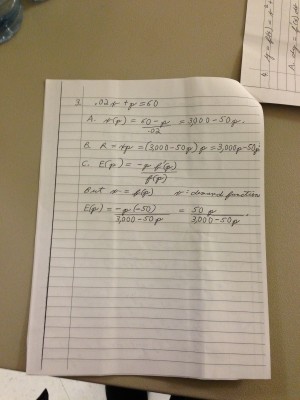 3. .02x + p = 60
A. x(p) = 60 - p / .02 = 3,000 - 50p.
B. R = xp = (3,000 - 50p) p = 3,000p - 50p
C. E(p) = -p f'(p) / f(p)
But x = f(p) x = demand function
E(p) = -p (-50) / 3,000 - 50p = 50 p / 3,000 - 50p.